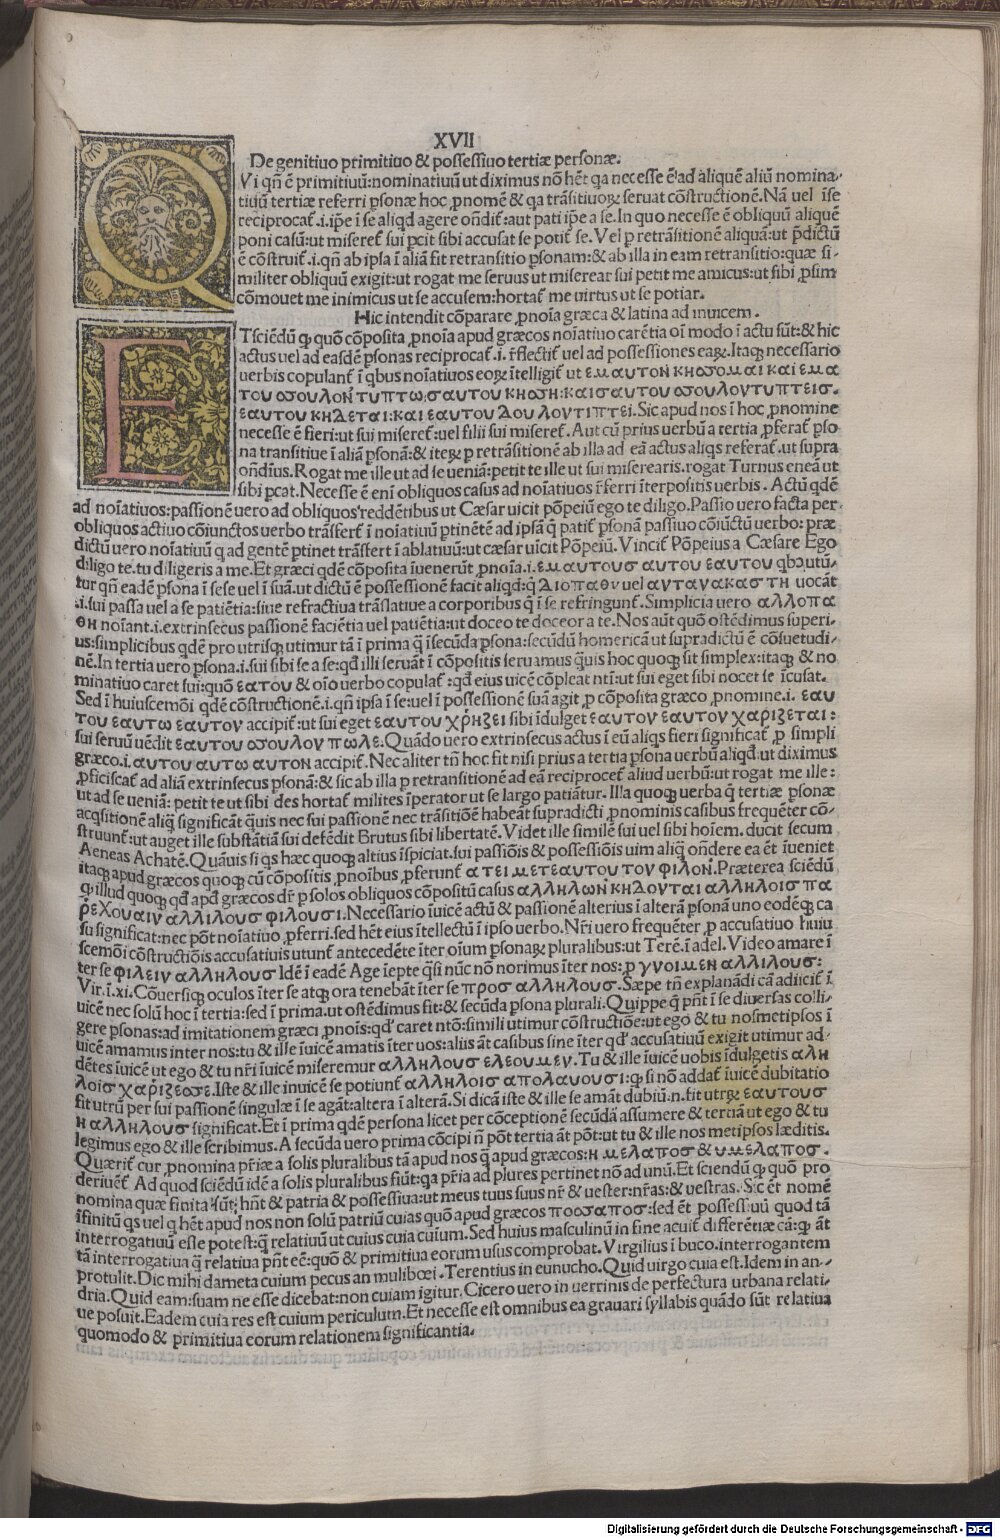 XVII
De genitiuo primitiuo & possessiuo tertiæ personæ.
QVi qñ ē primitiuũ: nominatiuũ ut diximus nō hēt qa necesse ē ad aliquē aliũ nomina-
tiuũ tertiæ referri ꝑsonæ hoc ꝓnomē & qa trāsitiuoꝝ seruat cōstructionē. Nā uel ĩ se
reciprocat̃ .i. ip̃e ĩ se aliqd agere oñdit̃: aut pati ip̃e a se. In quo necesse ē obliquũ aliquē
poni casũ: ut miseret̃ sui ꝑcit sibi accusat se potit̃ se. Vel ꝑ retrāsitionē aliquā: ut p̃dictũ
ē cōstruit̃ .i. qñ ab ipsa ĩ aliā fit retransitio ꝑsonam: & ab illa in eam retransitio: quæ si-
militer obliquũ exigit: ut rogat me seruus ut miserear sui petit me amicus: ut sibi ꝓsim
cōmouet me inimicus ut se accusem: hortat̃ me uirtus ut se potiar.
Hic intendit cōparare ꝓnoĩa græca & latina ad inuicem.
ETsciēdũ ꝙ quō cōposita ꝓnoĩa apud græcos noĩatiuo carētia oĩ modo ĩ actu sũt: & hic
actus uel ad easdē ꝑsonas reciprocat̃ .i. r̃flectit̃ uel ad possessiones eaꝝ. Itaqꝫ necessario
uerbis copulant̃ ĩ qbus noĩatiuos eoꝝ ĩtelligit̃ ut εμαυτον κηδομαι και εμα
του δουλον τυπτω: σαυτου κηδη: και σαυτου δουλον τυπτεισ.
εαυτου κηδεται: και εαυτου δουλον τιπτει. Sic apud nos ĩ hoc ꝓnomine
necesse ē fieri: ut sui miseret̃: uel filii sui miseret̃. Aut cũ prius uerbũ a tertia ꝓferat̃ ꝑso
na transitiue ĩ aliā ꝑsonā: & iteꝝ ꝑ retrāsitionē ab illa ad eā actus aliqs referat̃. ut supra
oñdĩus. Rogat me ille ut ad se ueniā: petit te ille ut sui miserearis. rogat Turnus eneā ut
sibi ꝑcat. Necesse ē enĩ obliquos casus ad noĩatiuos r̃ferri ĩterpositis uerbis. Actũ qdē
ad noĩatiuos: passionē uero ad obliquos reddētibus ut Cæsar uicit pōpeiũ ego te diligo. Passio uero facta per
obliquos actiuo cōiunctos uerbo trāsfert̃ ĩ noĩatiuũ ꝑtinētē ad ipsā q̃ patit̃ ꝑsonā passiuo cōiũctũ uerbo: præ
dictũ uero noĩatiuũ q ad gentē ꝑtinet trāsfert ĩ ablatiuũ: ut cæsar uicit Pōpeiũ. Vincit̃ Pōpeius a Cæsare Ego
diligo te. tu diligeris a me. Et græci qdē cōposita ĩuenerũt ꝓnoĩa .i. εμαυτουσ αυτου εαυτου qbꝫ utũ-
tur qñ eadē ꝑsona ĩ sese uel ĩ suā. ut dictũ ē possessionē facit aliqd: q̃ διοπαθν uel αντανακαστη uocāt
.i. sui passa uel a se patiētia: siue refractiua trāslatiue a corporibus q̃ ĩ se refringunt̃. Simplicia uero αλλοπα
θη noĩant .i. extrinsecus passionē faciētia uel patiētia: ut doceo te doceor a te. Nos aũt quō ostēdimus superi-
us: simplicibus qdē pro utrisqꝫ utimur tā ĩ prima q̃ ĩ secũda ꝑsona: secũdũ homericā ut supradictũ ē cōsuetudi-
nē. In tertia uero ꝑsona .i. sui sibi se a se: qd̃ illi seruāt ĩ cōpositis seruamus q̃uis hoc quoqꝫ sit simplex: itaqꝫ & no
minatiuo caret sui: quō εατου & oĩo uerbo copulat̃: qd̃ eius uicē cōpleat ntĩ: ut sui eget sibi nocet se ĩcusat.
Sed ĩ huiuscemōi qdē cōstructionē .i. qñ ipsa ĩ se: uel ĩ possessionē suā agit ꝑ cōposita græco ꝓnomine .i. εαυ
του εαυτω εαυτον accipit̃: ut sui eget εαυτου χρηζει sibi ĩdulget εαυτον εαυτον χαριζεται:
sui seruũ uēdit εαυτου δουλον πωλε. Quādo uero extrinsecus actus ĩ eũ aliqs fieri significat̃ ꝑ simpli
græco .i. αυτου αυτω αυτον accipit̃. Nec aliter tñ hoc fit nisi prius a tertia ꝑsona uerbũ aliqd̃ ut diximus
ꝓficiscat̃ ad aliā extrinsecus ꝑsonā: & sic ab illa ꝑ retransitionē ad eā reciprocet̃ aliud uerbũ: ut rogat me ille:
ut ad se ueniā: petit te ut sibi des hortat̃ milites ĩperator ut se largo patiātur. Illa quoqꝫ uerba q̃ tertiæ ꝑsonæ
acq̃sitionē aliq̃ significāt q̃uis nec sui passionē nec trāsitiōē habeāt supradicti ꝓnominis casibus frequēter cō-
struunt̃: ut auget ille substātiā sui defēdit Brutus sibi libertatē. Videt ille similē sui uel sibi hoĩem. ducit secum
Aeneas Achatē. Quāuis si qs hæc quoqꝫ altius ĩspiciat. sui passiōis & possessiōis uim aliq̃ oñdere ea ēt ĩueniet
itaqꝫ apud græcos quoqꝫ cũ cōpositis ꝓnoĩbus ꝓferunt̃ ατει μετεαυτου τον φιλον. Præterea sciēdũ
ꝙ illud quoqꝫ qd̃ apd̃ græcos dr̃ ꝑ solos obliquos cōpositũ casus αλληλων κηδονται αλληλοισ πα
ρεχουαιν αλλιλουσ φιλουσι. Necessario ĩuicē actũ & passionē alterius ĩ alterā ꝑsonā uno eodēqꝫ ca
su significat: nec pōt noĩatiuo ꝓferri. sed hēt eius ĩtellectũ ĩ ipso uerbo. Nr̃i uero frequēter ꝓ accusatiuo huiu
scemōi cōstructiōis accusatiuis utunt̃ antecedēte ĩter oĩum ꝑsonaꝝ pluralibus: ut Terē. ĩ adel. Video amare ĩ
ter se φιλειν αλληλουσ Idē ĩ eadē Age ĩepte q̃si nũc nō norimus ĩter nos: ꝑ γνοιμεν αλλιλουσ:
Vir. ĩ .xi. Cōuersiqꝫ oculos ĩter se atqꝫ ora tenebāt ĩter se προσ αλληλουσ. Sæpe tñ explanādi cā adiicit̃ ĩ
uicē nec solũ hoc ĩ tertia: sed ĩ prima. ut ostēdimus fit: & secũda ꝑsona plurali. Quippe q̃ pñt ĩ se diuersas colli-
gere ꝑsonas: ad imitationem græci ꝓnois: qd̃ caret ntō: simili utimur cōstructiōe: ut ego & tu nosmetipsos ĩ
uicē amamus inter nos: tu & ille ĩuicē amatis ĩter uos: aliis āt casibus sine ĩter qd̃ accusatiuũ exigit utimur ad-
dētes ĩuicē ut ego & tu nr̃i ĩuicē miseremur αλληλουσ ελεουμεν. Tu & ille ĩuicē uobis ĩdulgetis αλη
λοισ χαριζεσε. Iste & ille inuicē se potiunt̃ αλληλοισ απολαυουσι: ꝙ si nō addat̃ ĩuicē dubitatio
fit utrũ per sui passionē singulæ ĩ se agāt: altera ĩ alterā. Si dicā iste & ille se amāt dubiũ .n. fit utrꝝ εαυτουσ
η αλληλουσ significat. Et ĩ prima qdē persona licet per cōceptionē secũdā assumere & tertiā ut ego & tu
legimus ego & ille scribimus. A secũda uero prima cōcipi ñ pōt tertia āt pōt: ut tu & ille nos metipsos læditis.
Quærit̃ cur ꝓnomina pr̃iæ a solis pluralibus tā apud nos q̃ apud græcos: η μελαποσ & υμελαποσ.
deriuēt̃. Ad quod sciēdũ idē a solis pluralibus fiũt: qa pr̃ia ad plures pertinet nō ad unũ. Et sciendũ ꝙ quō pro
nomina quæ finita sũt: hñt & patria & possessiua: ut meus tuus suus nr̃ & uester: nr̃as: & uestras. Sic ēt nomē
ĩfinitũ qs uel q hēt apud nos non solũ patriũ cuias quō apud græcos ποδαποσ: sed ēt possessiuũ quod tā
interrogatiuũ esse potest: q̃ relatiuũ ut cuius cuia cuium. Sed huius masculinũ in fine acuit̃ differētiæ cā: ꝙ āt
tā interrogatiua q̃ relatiua pñt eē: quō & primitiua eorum usus comprobat. Virgilius ĩ buco. interrogantem
protulit. Dic mihi dameta cuium pecus an muliboei. Terentius in eunucho. Quid uirgo cuia est. Idem in an-
dria. Quid eam: suam ne esse dicebat: non cuiam igitur. Cicero uero in uerrinis de perfectura urbana relati-
ue posuit. Eadem cuia res est cuium periculum. Et necesse est omnibus ea grauari syllabis quādo sũt relatiua
quomodo & primitiua eorum relationem significantia.
Digitalisierung gefördert durch die Deutsche Forschungsgemeinschaft - DFG